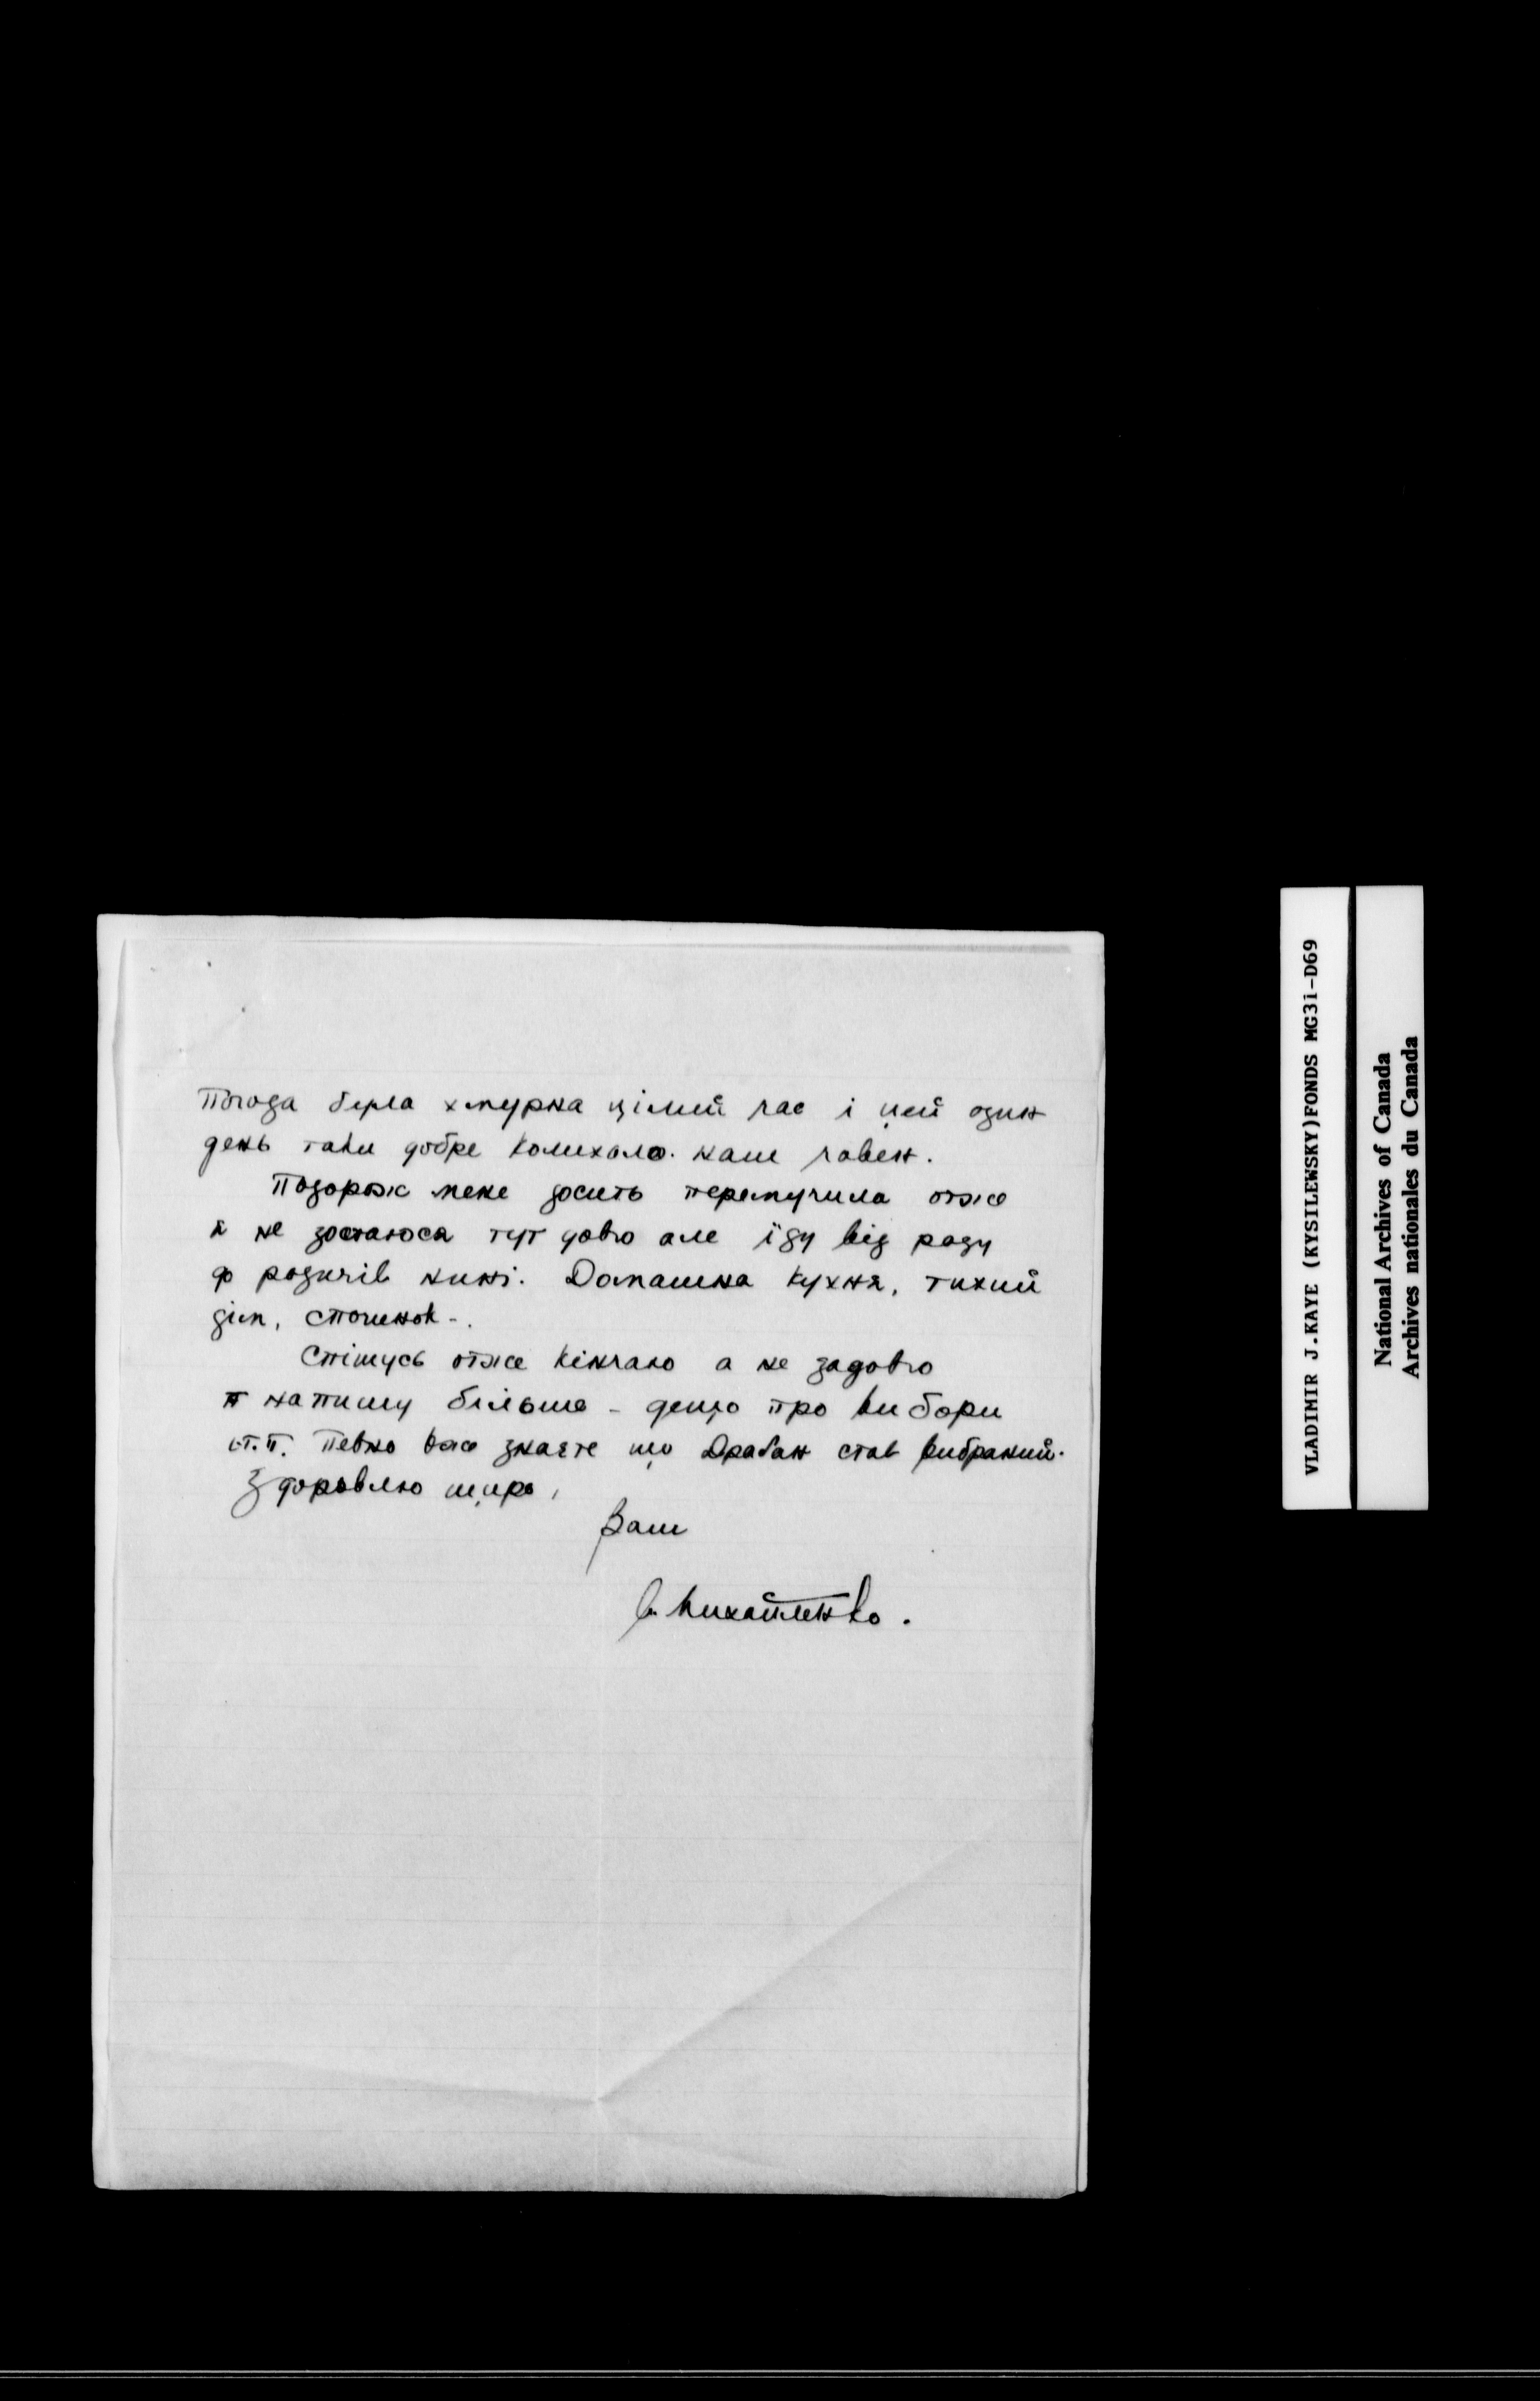 Погода була хмурна цілий час і цей один
день таки добре колихало. наш човен.
Подорож мене досить перемучила отже
я не зостаюся тут довго але їду від роду
до родичів нині. Домашна кухня, тихий
дім, спочинок -.
Спішусь отже кінчаю а не задовго
напишу більше - дещо про вибори
і т.п. Певно вже знаєте що Драган став вибраний.
Здоровлю щиро,
Ваш
В. Михайленко.
VLADIMIR J.KAYE (KYSILEWSKY)FONDS MG31-D69
National Archives of Canada
Archives nationales du Canada